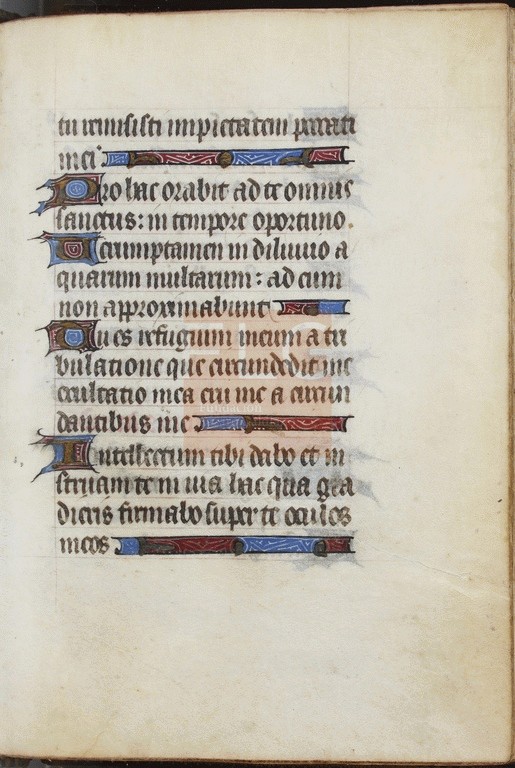 tu remisisti impietatem peccati
mei
Pro hac orabit ad te omnis
sanctus: in tempore oportuno.
Verumptamen in diluuio a
quarum multarum: ad eum
non approximabunt
Tu es refugium meum a tri
bulatione que circundedit me
exultatio mea erue me a circun
dantibus me
Intellectum tibi dabo et in
struam te in uia hac qua gra
dieris firmabo super te oculos
meos
FLG
Fundación